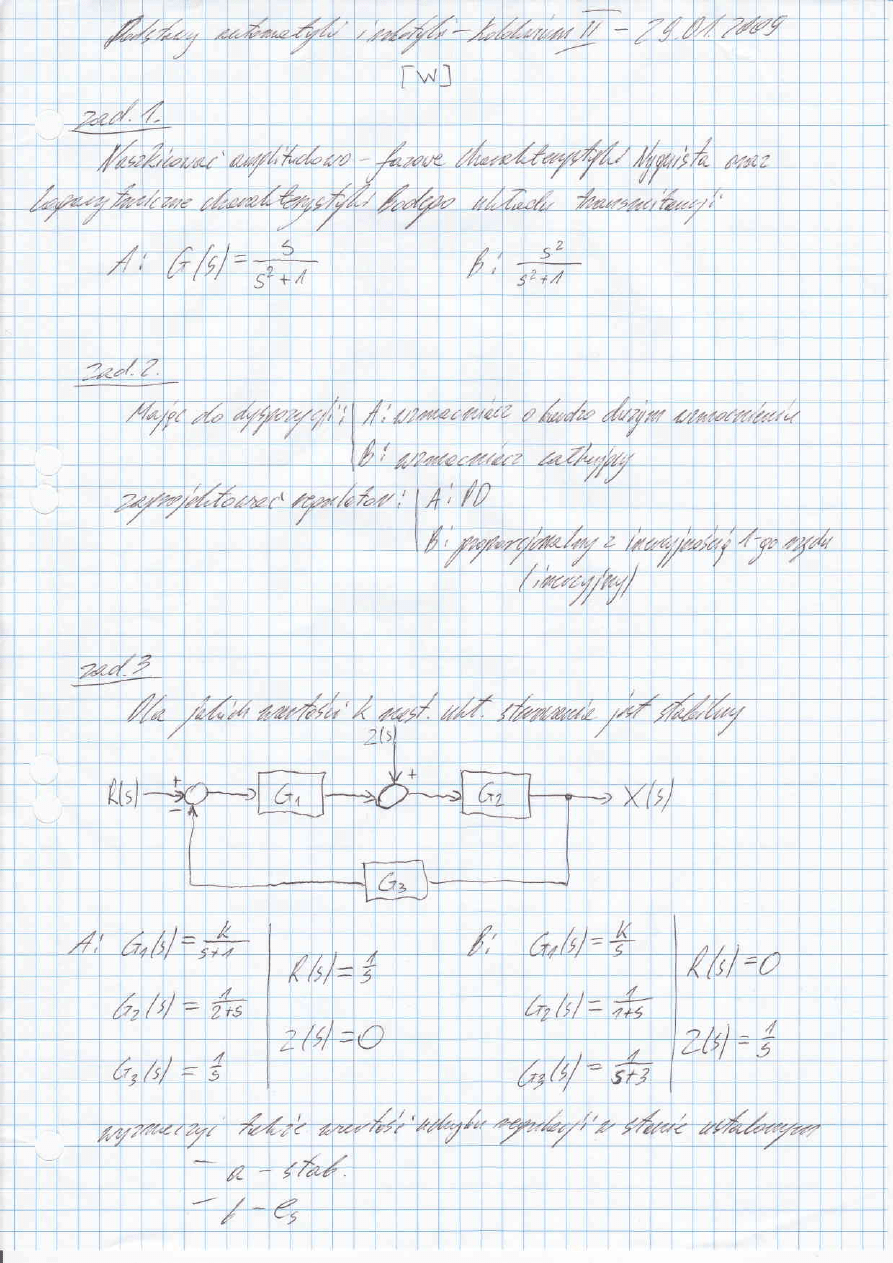 Podstawy automatyki i robotyki – Kolokwium II – 29.01.2009
[W]
zad. 1.
Naszkicować amplitudowo – fazowe charakterystyki Nyquista oraz
logarytmiczne charakterystyki Bodego układu transmitancji
A: G(s) = s / (s² + 1) B: s² / (s² + 1)
zad. 2.
Mając do dyspozycji: A: wzmacniacz o bardzo dużym wzmocnieniu
B: wzmacniacz całkujący
zaprojektować regulator: A: PD
B: proporcjonalny z inercyjnością 1-go rzędu
(inercyjny)
zad. 3
Dla jakich wartości k nast. ukł. sterowania jest stabilny
Z(s)
R(s) + − G1 + G2 X(s)
G3
A: G1(s) = k / (s+1) R(s) = 1/s B: G1(s) = k/s R(s) = 0
G2(s) = 1 / (2+s) Z(s) = 0 G2(s) = 1 / (1+s) Z(s) = 1/s
G3(s) = 1/s G3(s) = 1 / (s+3)
wyznaczyć także wartość uchybu regulacji w stanie ustalonym
– a – stab.
– b – es